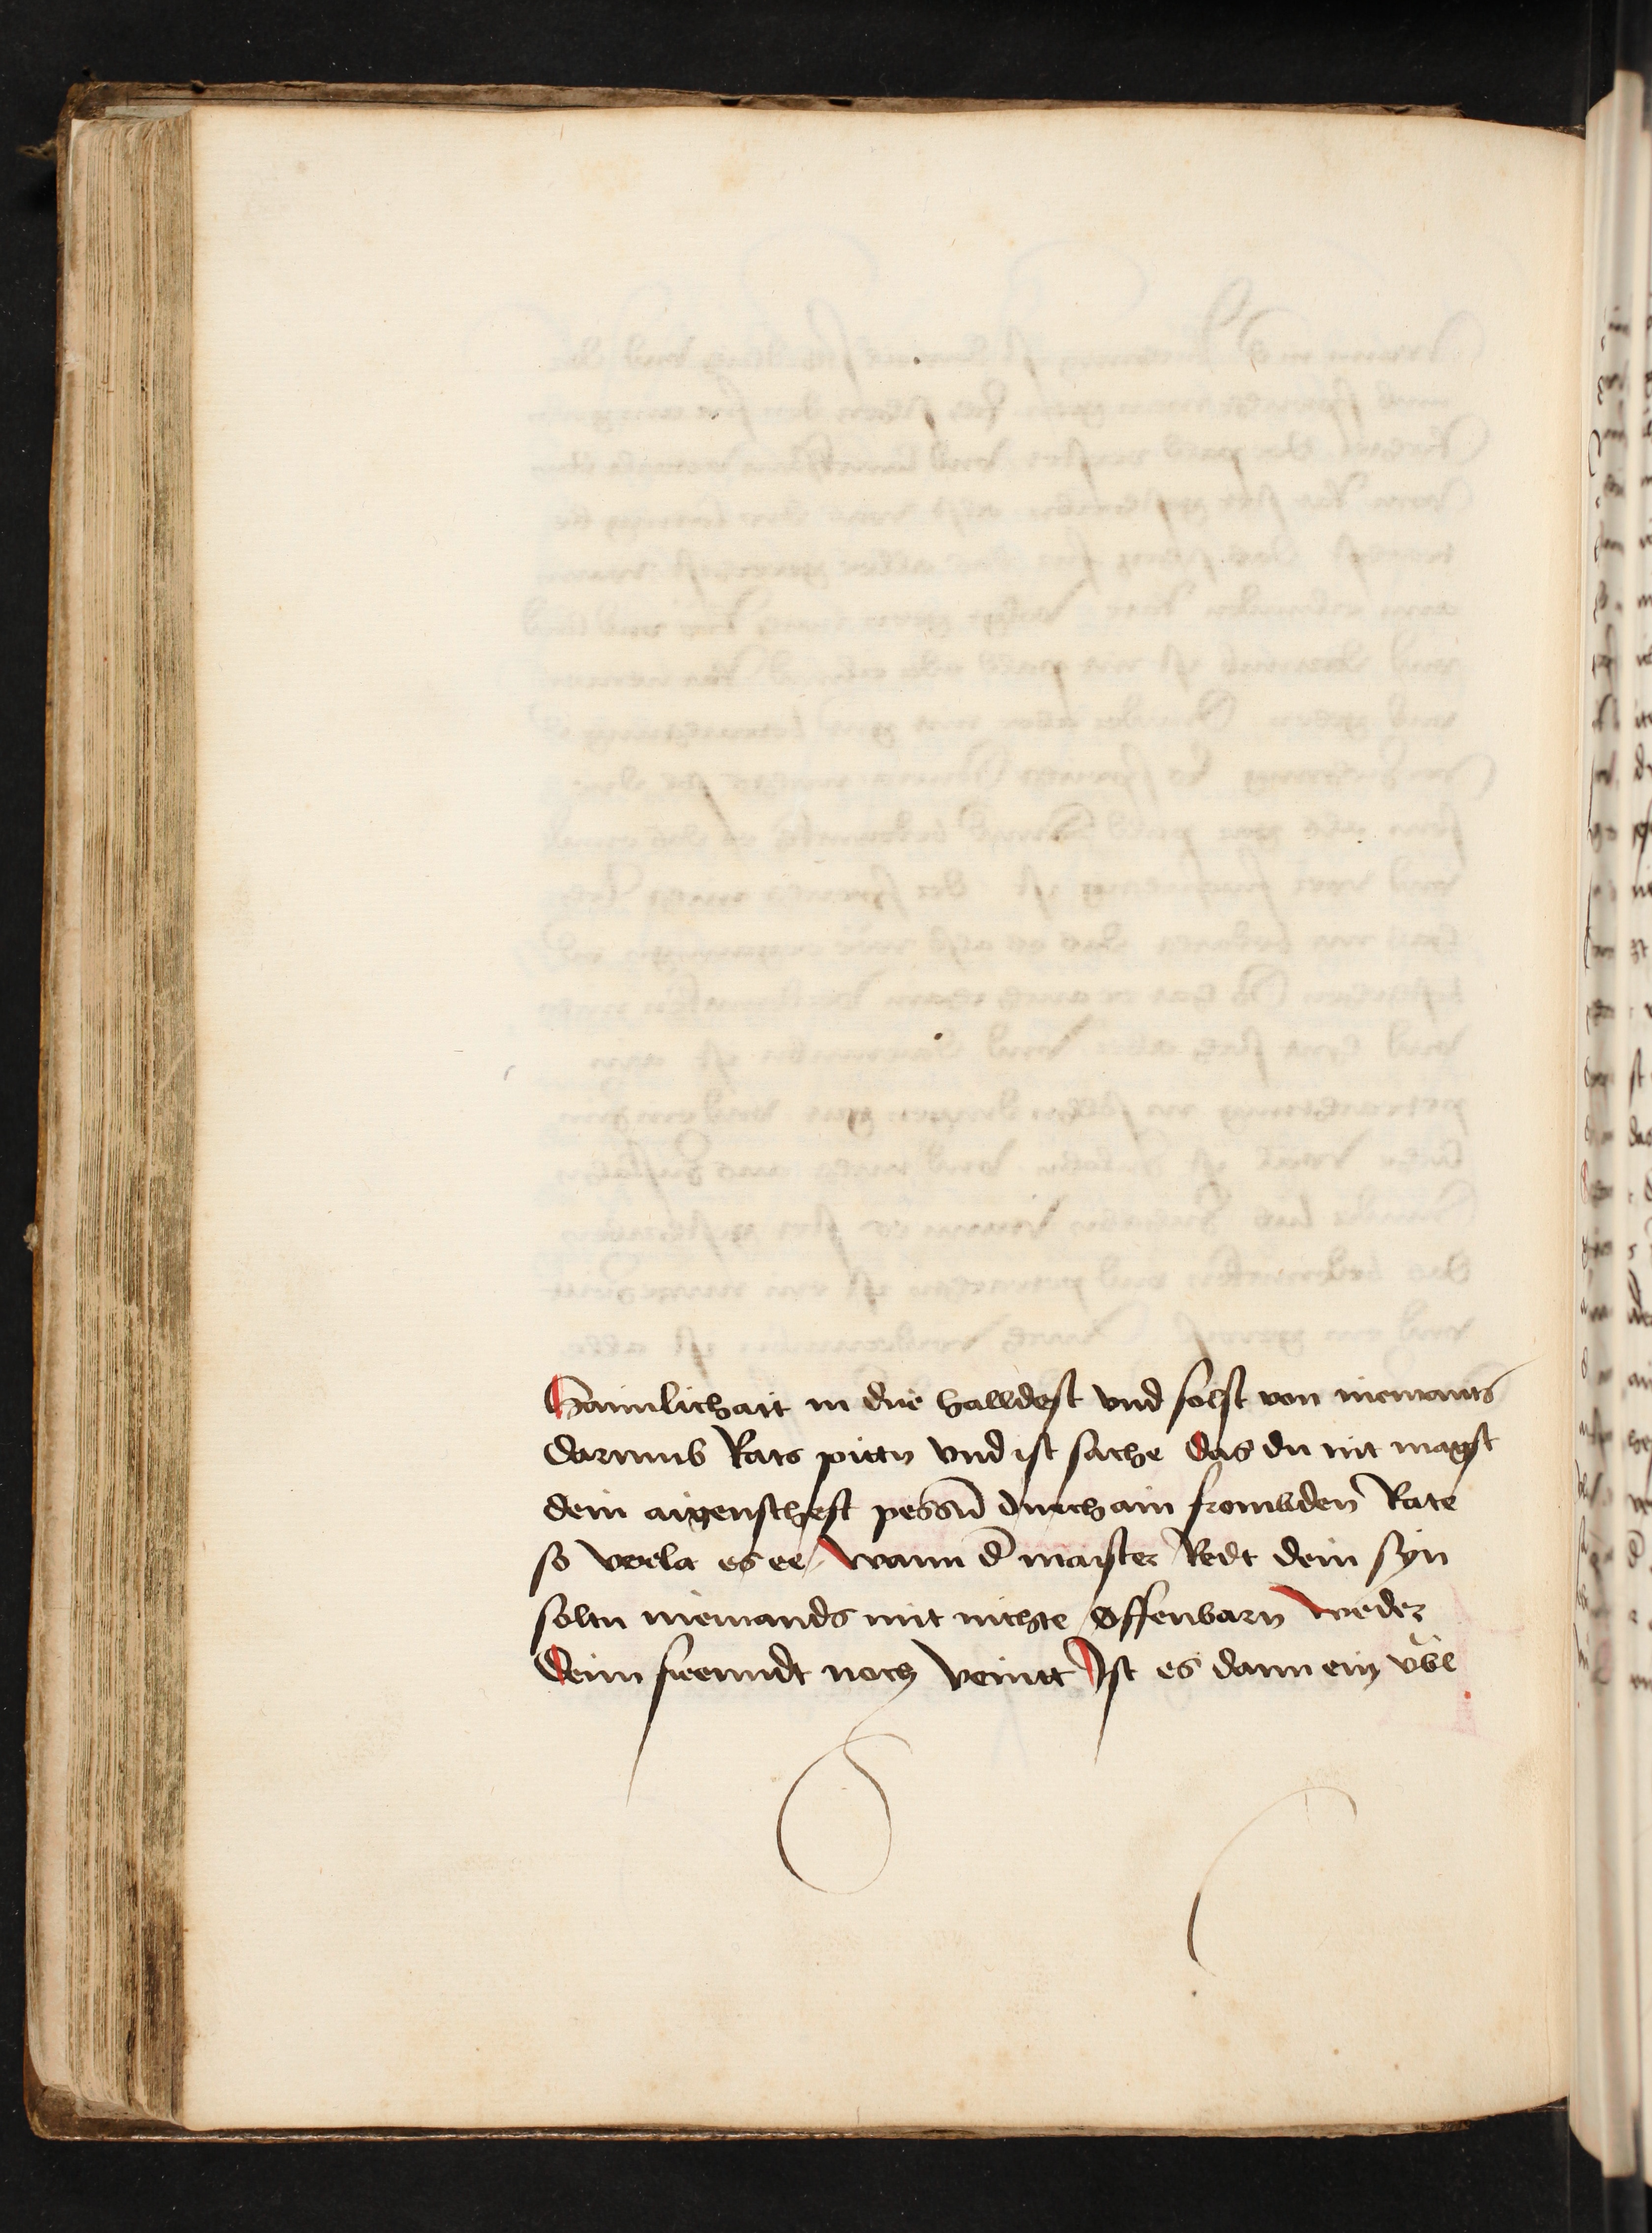 Haimlichait in dir halldest vnd solst von niemants
darumb Rats pittn vnd ist sache das du nit magst
dein aigenscheft pessn̄ durch ain frombden Rate
so verla es ee / wann d̄ maister Redt dein syn
soltu niemands mit nichte offenbarn weder
deim freundt noch veindt Ist es dann ein vbl